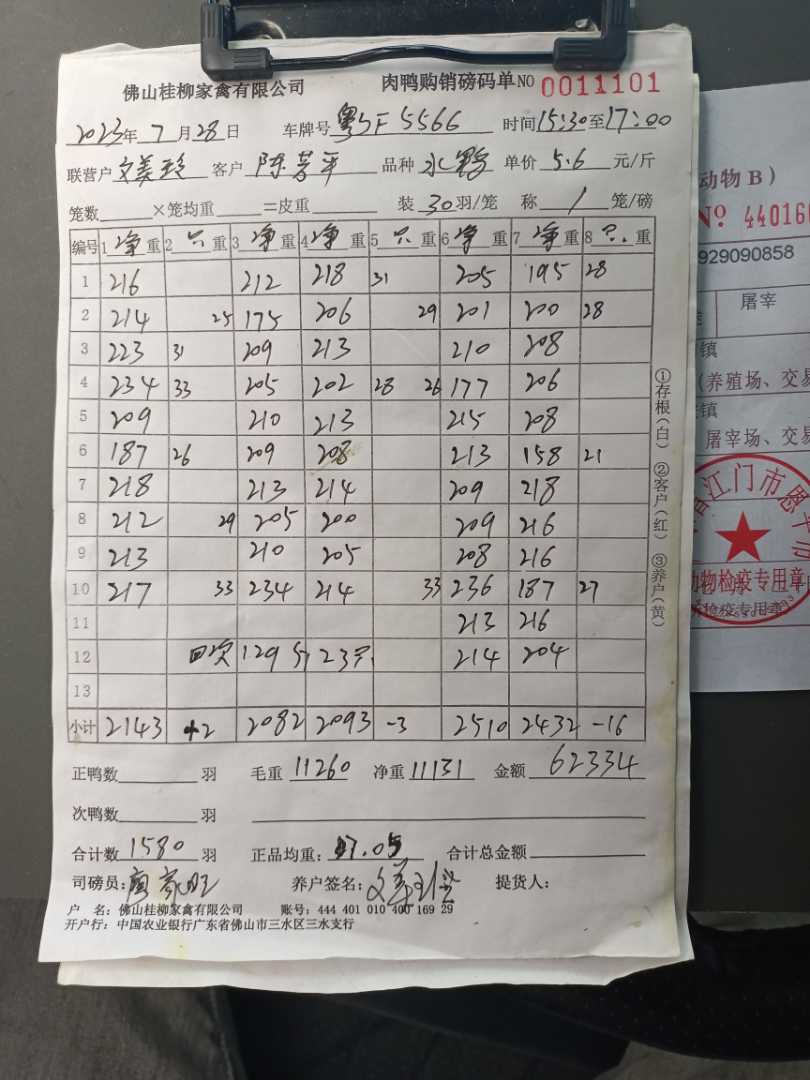 佛山桂柳家禽有限公司 肉鸭购销磅码单 NO 0011101
2023年 7 月 28 日 车牌号 粤JF5566 时间 15:30 至 17:00
联营户 客户 陈芳平 品种 水鸭 单价 5.6 元/斤
笼数 ×笼均重 =皮重 装 30 羽/笼 称 1 笼/磅
编号 1 净重 2 只重 3 净重 4 净重 5 只重 6 净重 7 净重 8 只重
1 216 212 218 31 205 195 28
2 214 25 175 206 29 201 200 28
3 223 31 209 213 210 208
4 234 33 205 202 28 26 177 206
5 209 210 213 215 208
6 187 26 209 208 213 158 21
7 218 213 214 209 218
8 212 29 205 200 209 216
9 213 210 205 208 216
10 217 33 234 214 33 236 187 27
11 213 216
12 四次 129斤 23只 214 204
13
小计 2143 +2 2082 2093 -3 2510 2432 -16
正鸭数 羽 毛重 11260 净重 11131 金额 62334
次鸭数 羽
合计数 1580 羽 正品均重: 7.05 合计总金额
司磅员: 养户签名: 提货人:
户 名: 佛山桂柳家禽有限公司 账号: 444 401 010 400 169 29
开户行: 中国农业银行广东省佛山市三水区三水支行
①存根(白) ②客户(红) ③养户(黄)
动物 B)
Nº 440160
929090858
屠宰
镇
(养殖场、交易
镇
屠宰场、交易
江门市恩平市
动物检疫专用章
检疫专用章